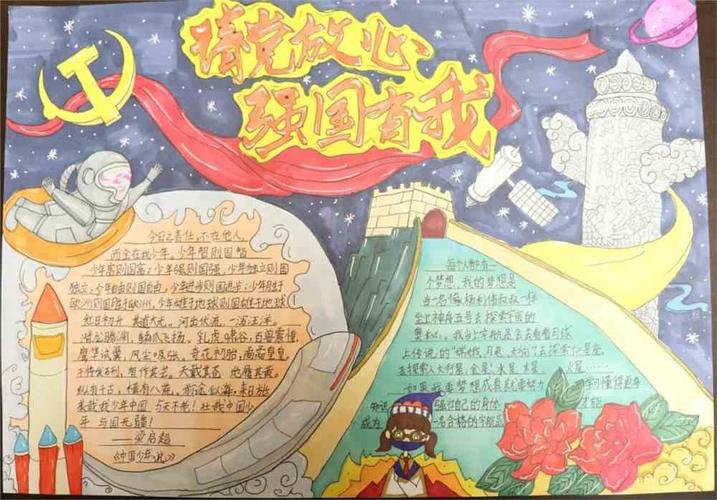 请党放心
强国有我
今日之责任,不在他人
而全在我少年,少年智则国智
少年富则国富,少年强则国强,少年独立则国
独立,少年自由则国自由,少年进步则国进步,少年胜于
欧洲则国胜于欧洲,少年雄于地球则国雄于地球
红日初升 其道大光,河出伏流,一泻汪洋
潜龙腾渊,鳞爪飞扬,乳虎啸谷,百兽震惶
鹰隼试翼,风尘吸张,奇花初胎,矞矞皇皇
干将发硎,有作其芒,天戴其苍 地履其黄
纵有千古,横有八荒,前途似海,来日方长
美哉我少年中国 与天不老!壮哉我中国少
年 与国无疆!
——梁启超
《中国少年说》
每个人都有一
个梦想,我的梦想是
当一名像杨利伟叔叔一样
坐上神舟五号去探索宇宙的
奥秘,我当上宇航员会去看看月球
上传说的"嫦娥,月兔
去探索八大行星,金星 水星 木星 火星……
如果我要梦想成真就要努力 学习懂得更多
知识 强壮自己的身体 才能
成为 一名合格的宇航员